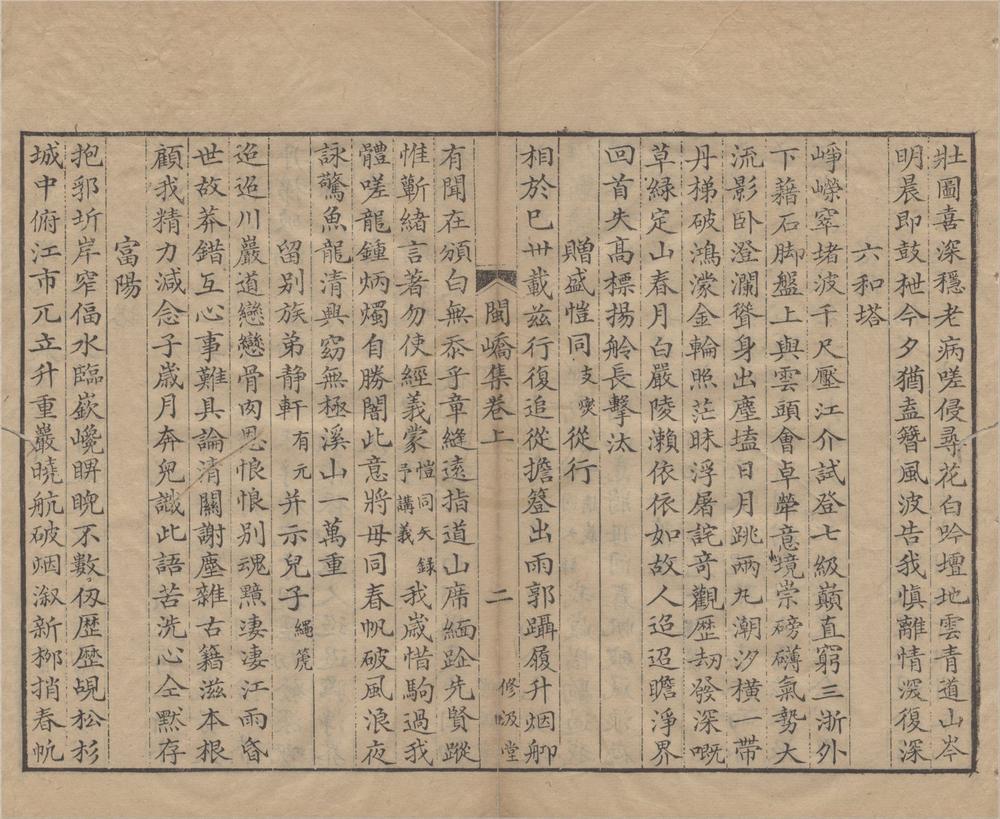 壯圖喜深穩老病嗟侵尋花白吟壇地雲青道山岑
明晨即鼓枻今夕猶盍簪風波告我慎離情深復深
六和塔
崢嶸窣堵波千尺壓江介試登七級巔直窮三浙外
下藉石脚盤上與雲頭會卓犖意境崇磅礴氣勢大
流影卧澄瀾聳身出塵壒日月跳兩丸潮汐橫一帶
丹梯破鴻濛金輪照茫昧浮屠詫奇觀歴劫發深嘅
草綠定山春月白嚴陵瀨依依如故人迢迢瞻淨界
回首失高標揚舲長擊汰
贈盛愷同支燮從行
相於巳卅載茲行復追從擔簦出雨郭躡履升烟舼
閩嶠集卷上 二 修汲堂
有聞在頒白無忝乎章縫遠指道山席緬跡先賢蹤
惟蘄緒言著勿使經義蒙愷同矢錄予講義我歲惜駒過我
體嗟龍鍾炳燭自勝闇此意將毋同春帆破風浪夜
詠驚魚龍清興窈無極溪山一萬重
留别族弟静軒有元并示兒子繩篪
迢迢川巖道戀戀骨肉恩悢悢别魂黯凄凄江雨昏
世故莽錯互心事難具論清關謝塵雜古籍滋本根
顧我精力減念子歲月奔兒識此語苦洗心仝默存
富陽
抱郭圻岸窄偪水臨嶔巉睥睨不數仭歴歴峴松杉
城中俯江市兀立升重巖曉航破烟漵新栁捎春帆